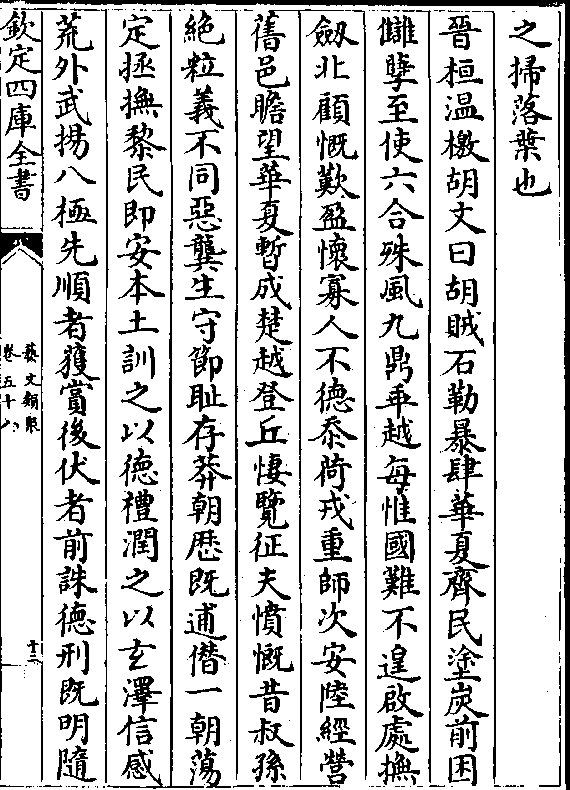 之掃落葉也
晉桓温檄胡文曰胡賊石勒暴肆華夏齊民塗炭前困
讎孽至使六合殊風九鼎乖越每惟國難不遑啟處撫
劔北顧慨歎盈懷寡人不德忝荷戎重師次安陸經營
舊邑瞻望華夏暫成楚越登丘悽覽征夫憤慨昔叔孫
絶粒義不同惡龔生守節耻存莽朝厯既逋僣一朝蕩
定拯撫黎民即安本土訓之以徳禮潤之以𤣥澤信感
荒外武揚八極先順者獲賞後伏者前誅德刑既明隨
欽定四庫全書
藝文類聚
卷五十八
十三